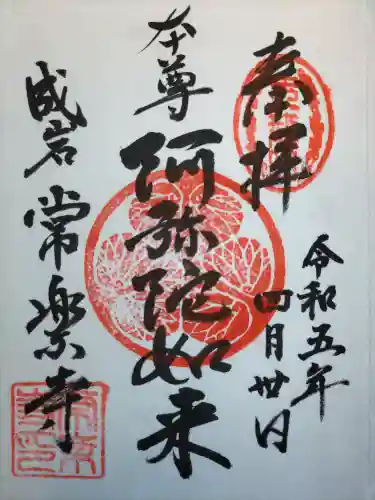 奉拝
令和五年
四月卅日
本尊
阿弥陀如来
成岩 常楽寺